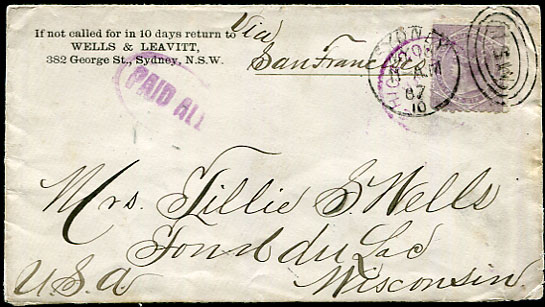 If not called for in 10 days return to
WELLS & LEAVITT,
382 George St., Sydney, N.S.W.
Via
San Francisco
PAID ALL
SYDNEY
AM
87
10
CHICAGO
N.S.W
Mrs. Tillie S. Wells
Fond du Lac
U.S.A Wisconsin.